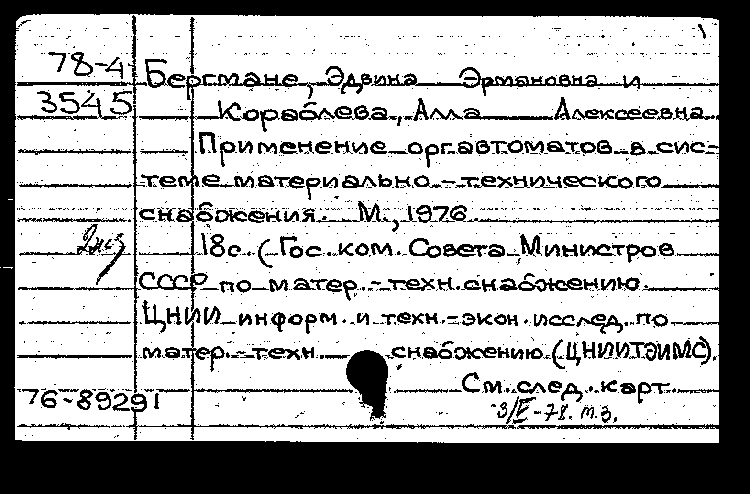 1
78-4 Бергмане, Эдвина Эрмановна и
3545 Кораблева, Алла Алексеевна
Применение оргавтоматов в сис-
теме материально-технического
снабжения. М., 1976
2экз 18с. (Гос. ком. Совета Министров
СССР по матер.-техн. снабжению.
ЦНИИ информ. и техн.-экон. исслед. по
матер.-техн. снабжению (ЦНИИТЭИМС).
См. след. карт.
76-89291
-78. т.з.